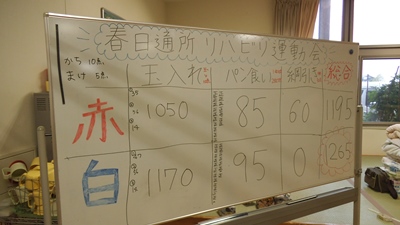 春日通所リハビリ運動会
かち 10点
まけ 5点
玉入れ パン食い 綱引き 総合
赤 1050 85 60 1195
白 1170 95 0 1265